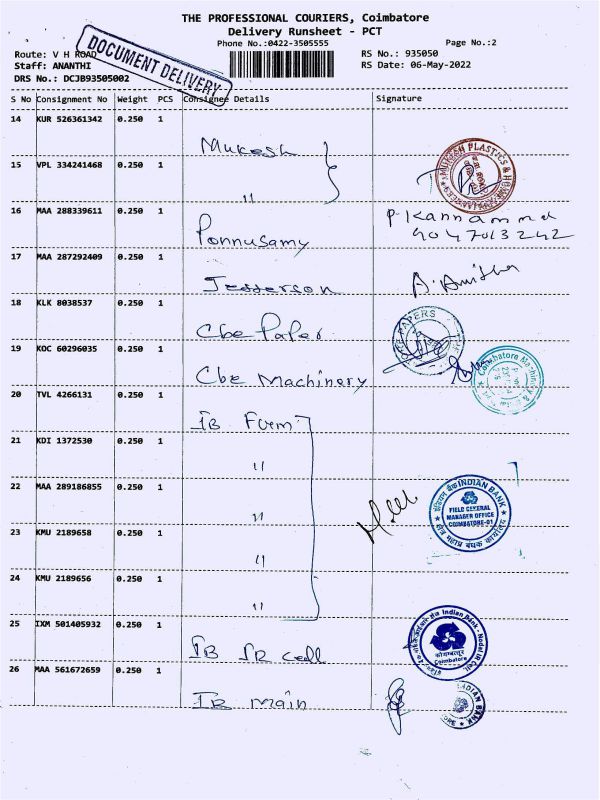 THE PROFESSIONAL COURIERS, Coimbatore
Delivery Runsheet - PCT
Phone No.:0422-3505555
Page No.:2
Route: V H ROAD
RS No.: 935050
Staff: ANANTHI
RS Date: 06-May-2022
DRS No.: DCJB93505002
DOCUMENT DELIVERY
S No Consignment No Weight PCS Consignee Details Signature
14 KUR 526361342 0.250 1 Mukesh
MUKESH PLASTICS &
15 VPL 334241468 0.250 1 "
16 MAA 288339611 0.250 1 Ponnusamy P. Kannammal
9047013242
17 MAA 287292409 0.250 1 Jefferson A. Anitha
18 KLK 8038537 0.250 1 Cbe Paper
PAPERS
19 KOC 60296035 0.250 1 Cbe Machinery
Coimbatore Machinery &
20 TVL 4266131 0.250 1 IB
21 KDI 1372530 0.250 1 "
22 MAA 289186855 0.250 1 "
इंडियन बैंक INDIAN BANK
FIELD GENERAL
MANAGER OFFICE
COIMBATORE-01
क्षेत्र महाप्रबंधक कार्यालय
23 KMU 2189658 0.250 1 "
24 KMU 2189656 0.250 1 "
25 IXM 501405932 0.250 1 IB IR cell
Indian Bank - Nodal IR Cell
कोयम्बत्तूर
Coimbatore
26 MAA 561672659 0.250 1 IB main
INDIAN BANK